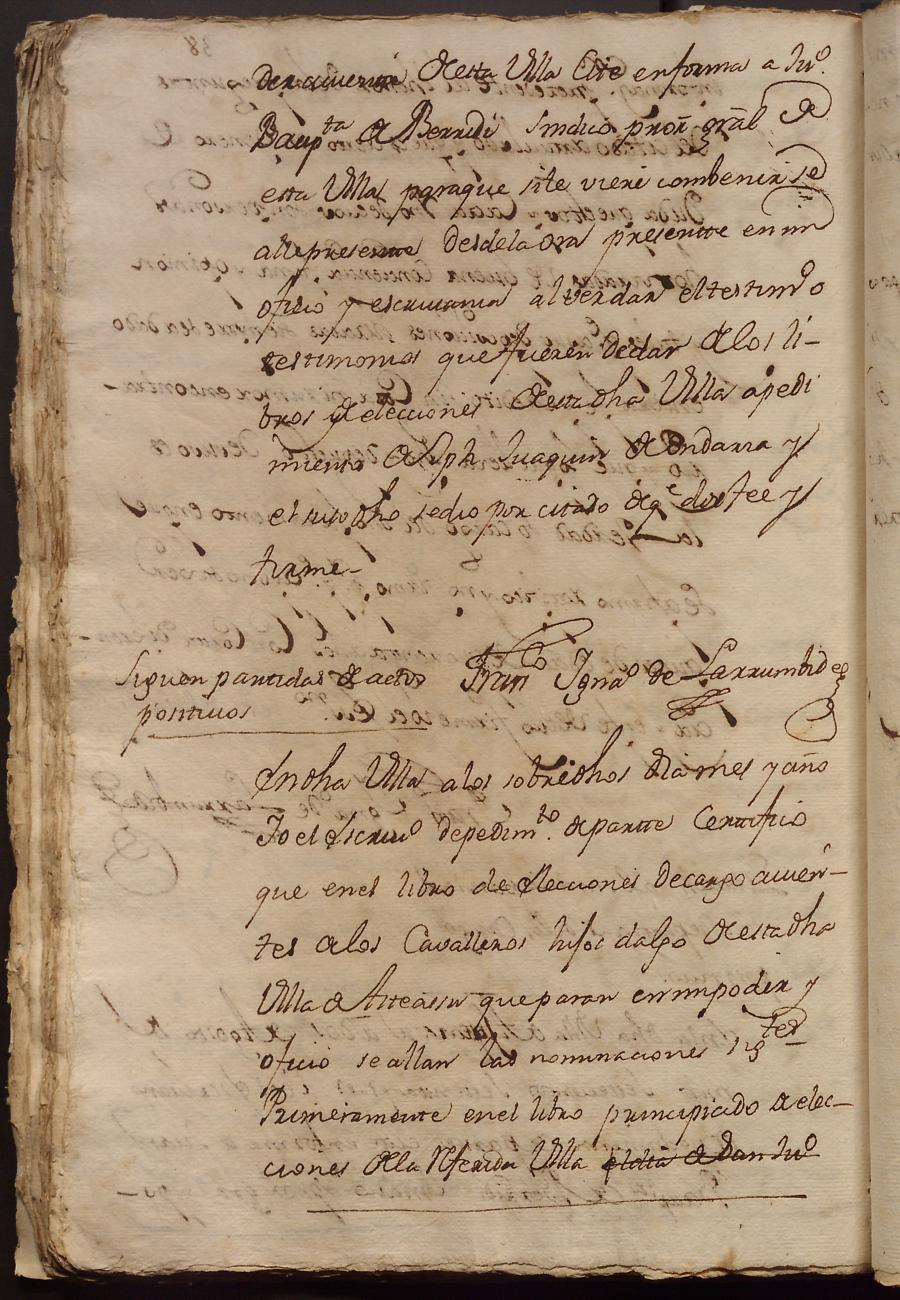 de esta Villa Cite en forma a Juº.
Baupta de Berridi Sindico proōr grāl de
esta Villa paraque si le viere combenir se
alle presente desde la ora presentte en mi
oficio y escrivania al ver dar el testimº o
testimonios que fueren de dar de los li-
bros de elecciones de esta dha Villa a pedi
miento de Jph Juaquin de Ondarra y
el suso dho se dio por citado de qe doy fee y
firme-
Siguen partidas de actos
positivos
Franco Ignaº de Larrumbide
En dha Villa a los sobre dhos dia mes y año
Yo el Escrivº de pedimto. de partte Certifico
que en el libro de elecciones de cargo avien-
tes de los Cavalleros hijos dalgo de esta dha
Villa de Asteassu que paran en mi poder y
oficio se allan las nominaciones sigtes
Primeramente en el libro principiado de elec-
ciones de la referida Villa el dia de San Juº